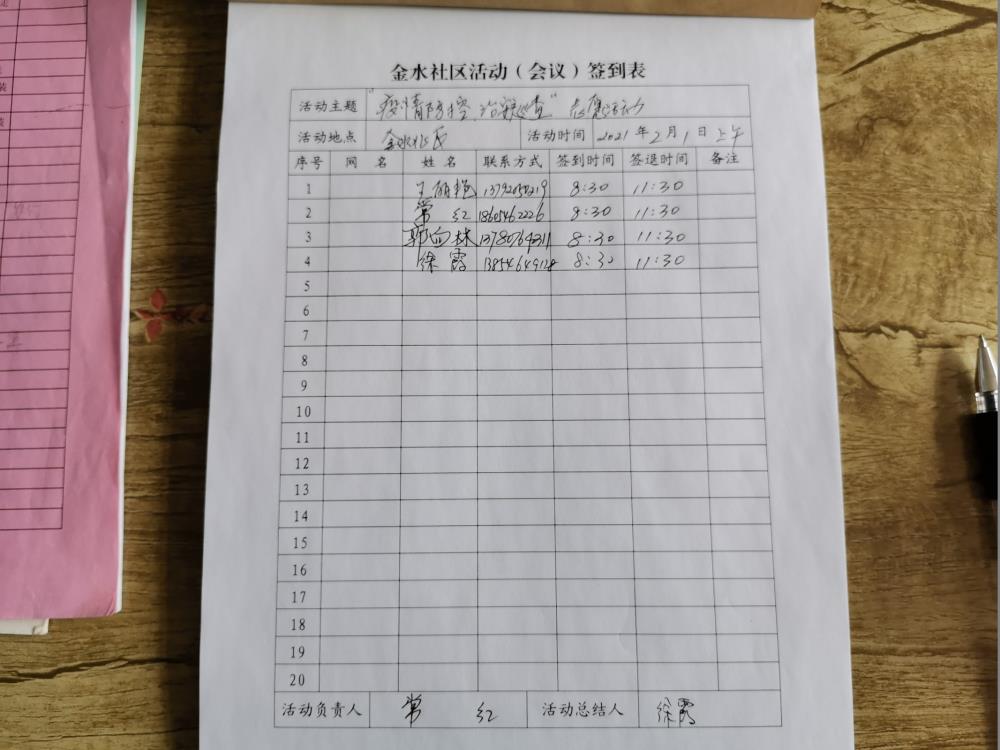 金水社区活动（会议）签到表
活动主题 “疫情防控、治 巡查”志愿活动
活动地点 金水社区 活动时间 2021年2月1日上午
序号 网 名 姓 名 联系方式 签到时间 签退时间 备注
1 王丽艳 13792050219 8:30 11:30
2 常 红 18605462226 8:30 11:30
3 郭向林 13780764311 8:30 11:30
4 徐霞 13854649128 8:30 11:30
5
6
7
8
9
10
11
12
13
14
15
16
17
18
19
20
活动负责人 常 红 活动总结人 徐霞